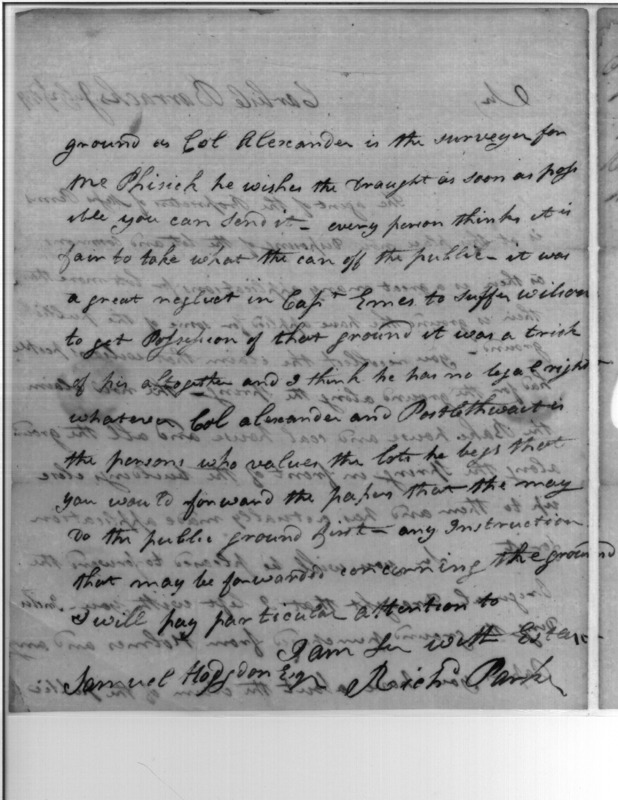 ground as Col Alexander is the surveyor for
Mr Phisick he wishes the Draught as soon as poss
ible you can send it – every person thinks it is
fair to take what the can off the public – it was
a great neglect in Capt Emes to suffer wilson
to get Possession of that ground it was a trick
of his altogether and I think he has no legal right
whatever Col alexander and Postlethwait is
the persons who values the lots he begs that
you would forward the papers that the may
Do the public ground first – any Instruction
that may be forwarded concerning the ground
I will pay particular attention to
I am Sir with Esteem
Samuel Hogsdon Esqr Richd Parker